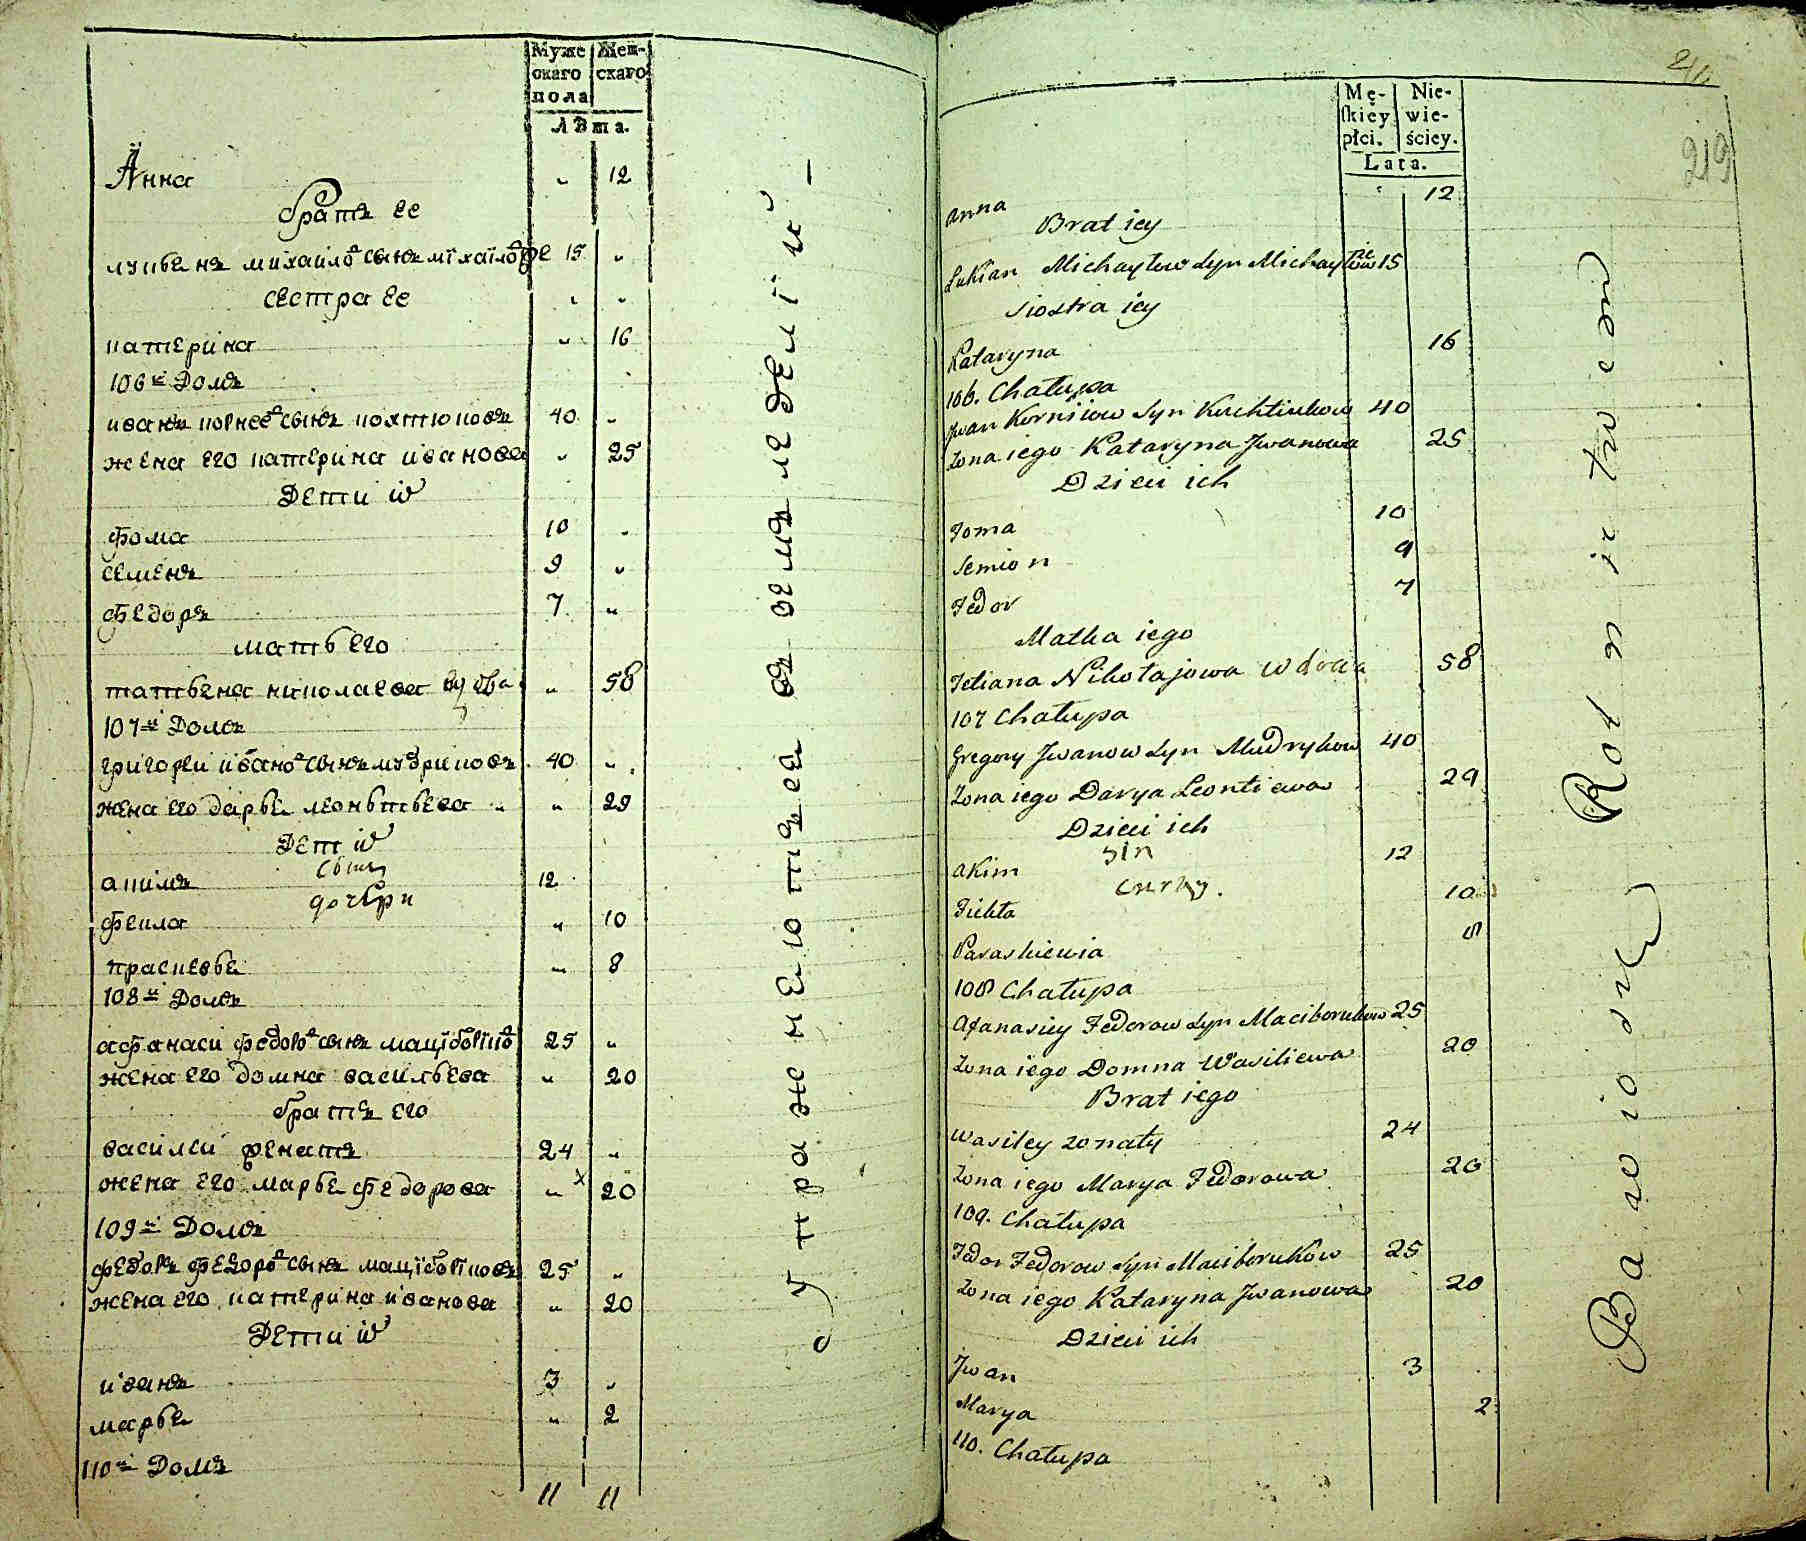 Муже Жен-
скаго скаго
пола
Лѣта.
Анна „ 12
братъ ее
лукьянъ михаиловъ сынъ михаиловъ 15 „
сестра ее „ „
катерина „ 16
106й Домъ
иванъ корнеевъ сынъ кохтюковъ 40 „
жена его катерина иванова „ 25
Дети их
фома 10 „
семенъ 9 „
федоръ 7 „
мать его
татьяна николаева вдова „ 58
107й Домъ
григорей ивановъ сынъ мудриковъ 40 „
жена его дарья леонтьева „ 29
Дети их
сынъ
акимъ 12
дочери
фекла „ 10
прасковья „ 8
108й Домъ
афанаси федоровъ сынъ мациборковъ 25 „
жена его домна васильева „ 20
братъ его
василеи женатъ 24 „
жена его марья федорова „ 20
109й Домъ
федоръ федоровъ сынъ мациборковъ 25 „
жена его катерина иванова „ 20
Дети их
иванъ 3 „
марья „ 2
110й Домъ
11 11
упражнѣются въ земледѣлїи
219
Mę- Nie-
skiey wie-
płci. ściey.
Lata.
Anna 12
Brat iey
Łukian Michayłow Syn Michayłow 15
Siostra iey
Kataryna 16
106. Chałupa
Jwan Korniiow Syn Kuchtiukow 40
Zona iego Kataryna Jwanowa 25
Dzieci ich
Foma 10
Semion 9
Fedor 7
Matka iego
Tetiana Nikołajowa wdowa 58
107 Chałupa
Gregory Jwanow Syn Mudrykow 40
Zona iego Darya Leontiewa 29
Dzieci ich
syn
Akim 12
curky.
Fiekła 10
Paraskiewia 8
108 Chałupa
Afanasiey Fedorow Syn Maciborukow 25
Zona iego Domna Wasiliewa 20
Brat iego
Wasiley zonaty 24
Zona iego Marya Fedorowa 20
109. Chałupa
Fedor Fedorow Syn Maciborukow 25
Zona iego Kataryna Jwanowa 20
Dzieci ich
Jwan 3
Marya 2
110. Chałupa
Bawio się Rolnictwem